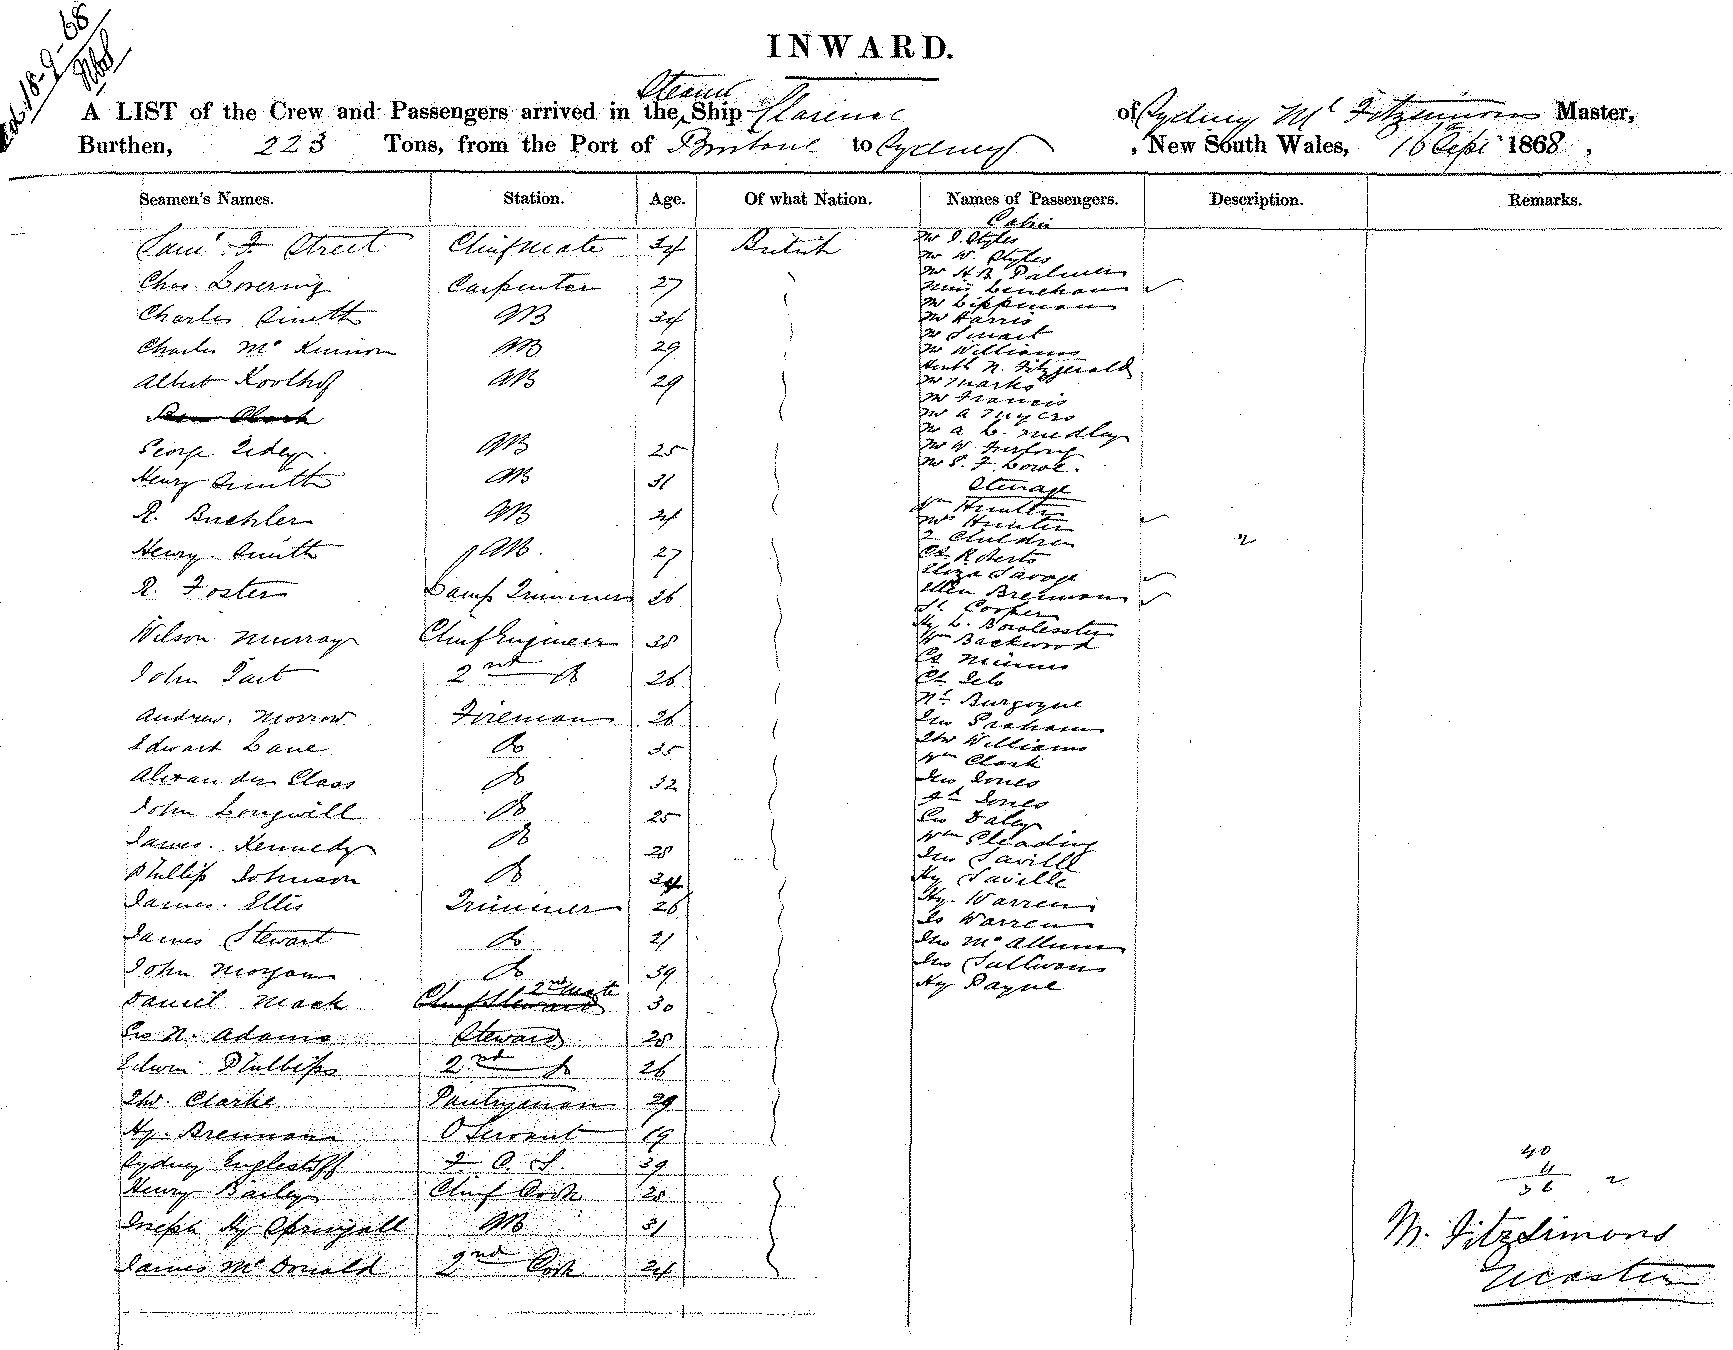 18-9-68
INWARD.
Steam
A LIST of the Crew and Passengers arrived in the Ship Clarence of Sydney M Fitzsimons Master,
Burthen, 223 Tons, from the Port of Brisbane to Sydney, New South Wales, 16 Sept 1868,
Seamen's Names. Station. Age. Of what Nation. Names of Passengers. Description. Remarks.
Saml F Street Chief Mate 34 British
Chas Lovering Carpenter 27
Charles Smith AB 34
Charles McKinnon AB 29
Albert AB 29
Clark
George AB 25
Henry Smith AB 31
R. Buehler AB 24
Henry Smith AB 27
R. Foster Lamp Trimmer 26
Wilson Murray Chief Engineer 38
John Tait 2nd Do 26
Andrew Morrow Fireman 26
Edward Lane Do 35
Alexander Class Do 32
John Longwill Do 25
James Kennedy Do 28
Phillip Johnson Do 24
James Ellis Trimmer 26
James Stewart Do 21
John Morgan Do 39
Daniel Mack Chief Steward 2nd Mate 30
Geo N. Adams Steward 28
Edwin Phillips 2nd Do 26
Tho. Clarke Pantryman 29
Hy Brennan Servant 19
Sydney Englestoff F. C. S. 39
Henry Bailey Chief Cook 28
Joseph Hy Springall AB 31
James McDonald 2nd Cook 24
Cabin
Mr J. Styles
Mr W. Styles
Mr H B Palmer
Miss Lenehan
Mr Lippman
Mr Harris
Mr Smart
Mr Williams
N. Fitzgerald
Mr Marks
Mr Francis
Mr A Myers
Mr A. L. Medley
Mr W. Furlong
Mr S. F. Lowe.
Steerage
Wm Hunter
Mrs Hunter
2 Children
Ch Roberts
Eliza Savage
Ellen Brennan
Cooper
Hy L.
Wm Backwood
Ch
Ch
Burgoyne
Jno Graham
Tho Williams
Wm Clark
Jno Jones
Jones
Geo Daley
Wm Pleading
Jno Saville
Hy Saville
Hy. Warren
Warren
Jno McAllum
Jno Sullivan
Hy Payne
40
4
36
M. Fitzsimons
Master